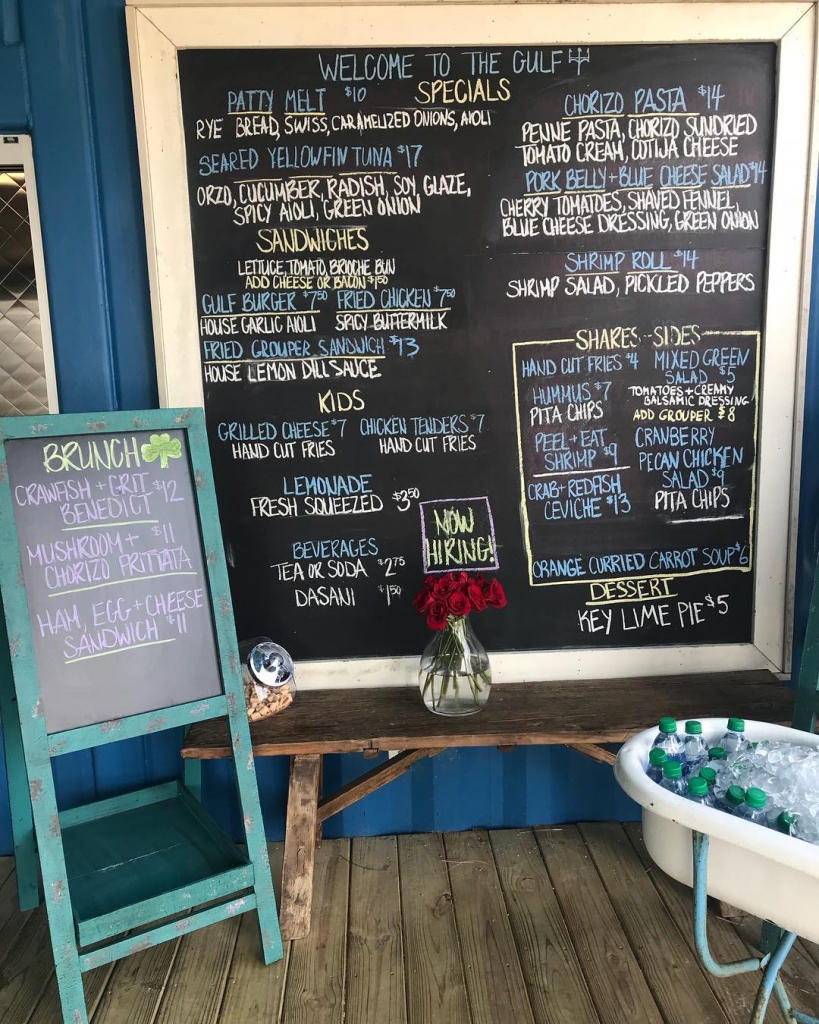 WELCOME TO THE GULF
SPECIALS
PATTY MELT $10
RYE BREAD, SWISS, CARAMELIZED ONIONS, AIOLI
SEARED YELLOWFIN TUNA $17
ORZO, CUCUMBER, RADISH, SOY, GLAZE,
SPICY AIOLI, GREEN ONION
CHORIZO PASTA $14
PENNE PASTA, CHORIZO SUNDRIED
TOMATO CREAM, COTIJA CHEESE
PORK BELLY + BLUE CHEESE SALAD $14
CHERRY TOMATOES, SHAVED FENNEL,
BLUE CHEESE DRESSING, GREEN ONION
SHRIMP ROLL $14
SHRIMP SALAD, PICKLED PEPPERS
SANDWICHES
LETTUCE, TOMATO, BRIOCHE BUN
ADD CHEESE OR BACON $1.50
GULF BURGER $7.50 FRIED CHICKEN $7.50
HOUSE GARLIC AIOLI SPICY BUTTERMILK
FRIED GROUPER SANDWICH $13
HOUSE LEMON DILL SAUCE
KIDS
GRILLED CHEESE $7 CHICKEN TENDERS $7
HAND CUT FRIES HAND CUT FRIES
LEMONADE
FRESH SQUEEZED $3.50
BEVERAGES
TEA OR SODA $2.75
DASANI $1.50
NOW
HIRING!
SHARES-SIDES
HAND CUT FRIES $4
HUMMUS $7
PITA CHIPS
PEEL + EAT
SHRIMP $9
CRAB + REDFISH
CEVICHE $13
MIXED GREEN
SALAD $5
TOMATOES + CREAMY
BALSAMIC DRESSING
ADD GROUPER $8
CRANBERRY
PECAN CHICKEN
SALAD $9
PITA CHIPS
ORANGE CURRIED CARROT SOUP $6
DESSERT
KEY LIME PIE $5
BRUNCH
CRAWFISH + GRIT $12
BENEDICT
MUSHROOM + $11
CHORIZO FRITTATA
HAM, EGG + CHEESE
SANDWICH $11